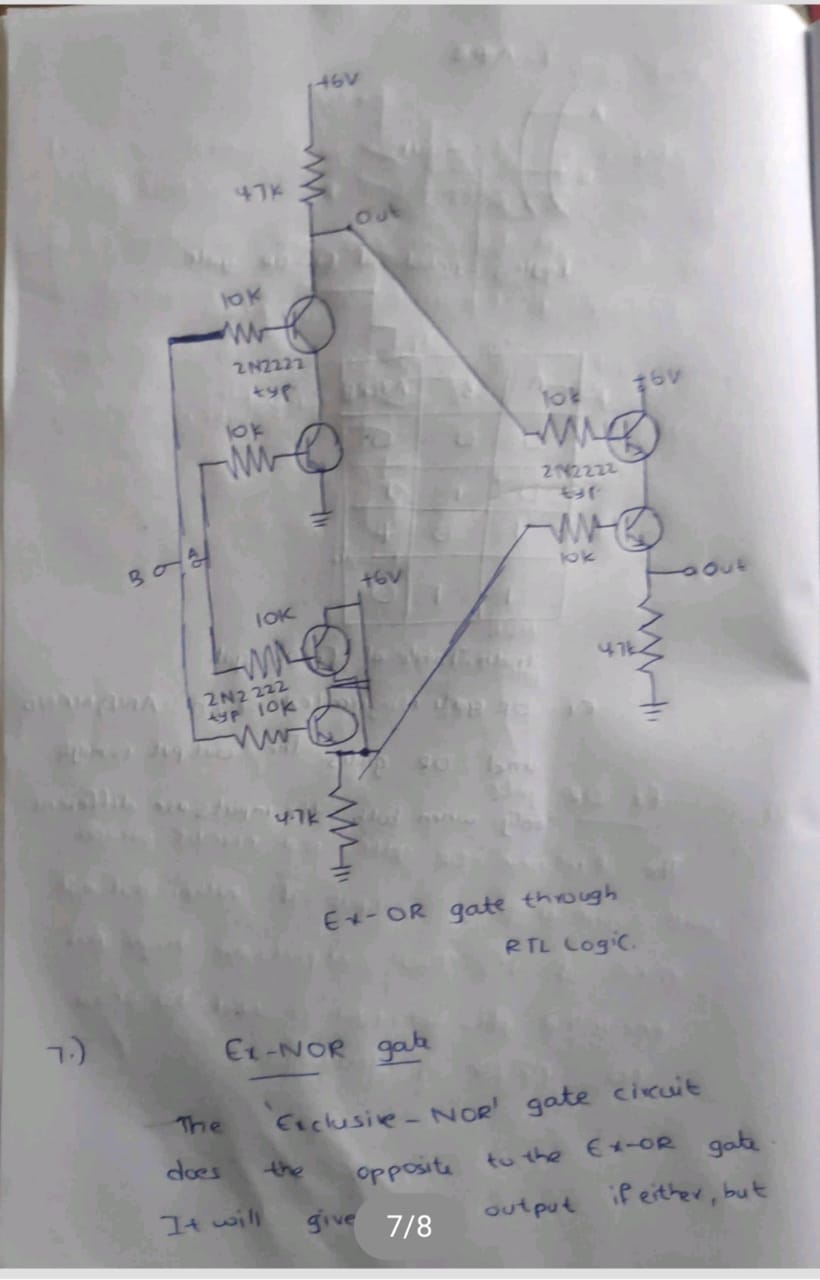 +6V
47K
Out
10K
2N2222
typ
10K
B
A
+6V
10K
2N2222
typ 10K
4.7K
10K
+6V
2N2222
typ.
10K
Out
4.7K
Ex-OR gate through
RTL Logic.
7.) Ex-NOR gate
The 'Exclusive-NOR' gate circuit
does the opposite to the Ex-OR gate.
It will give output if either, but
7/8